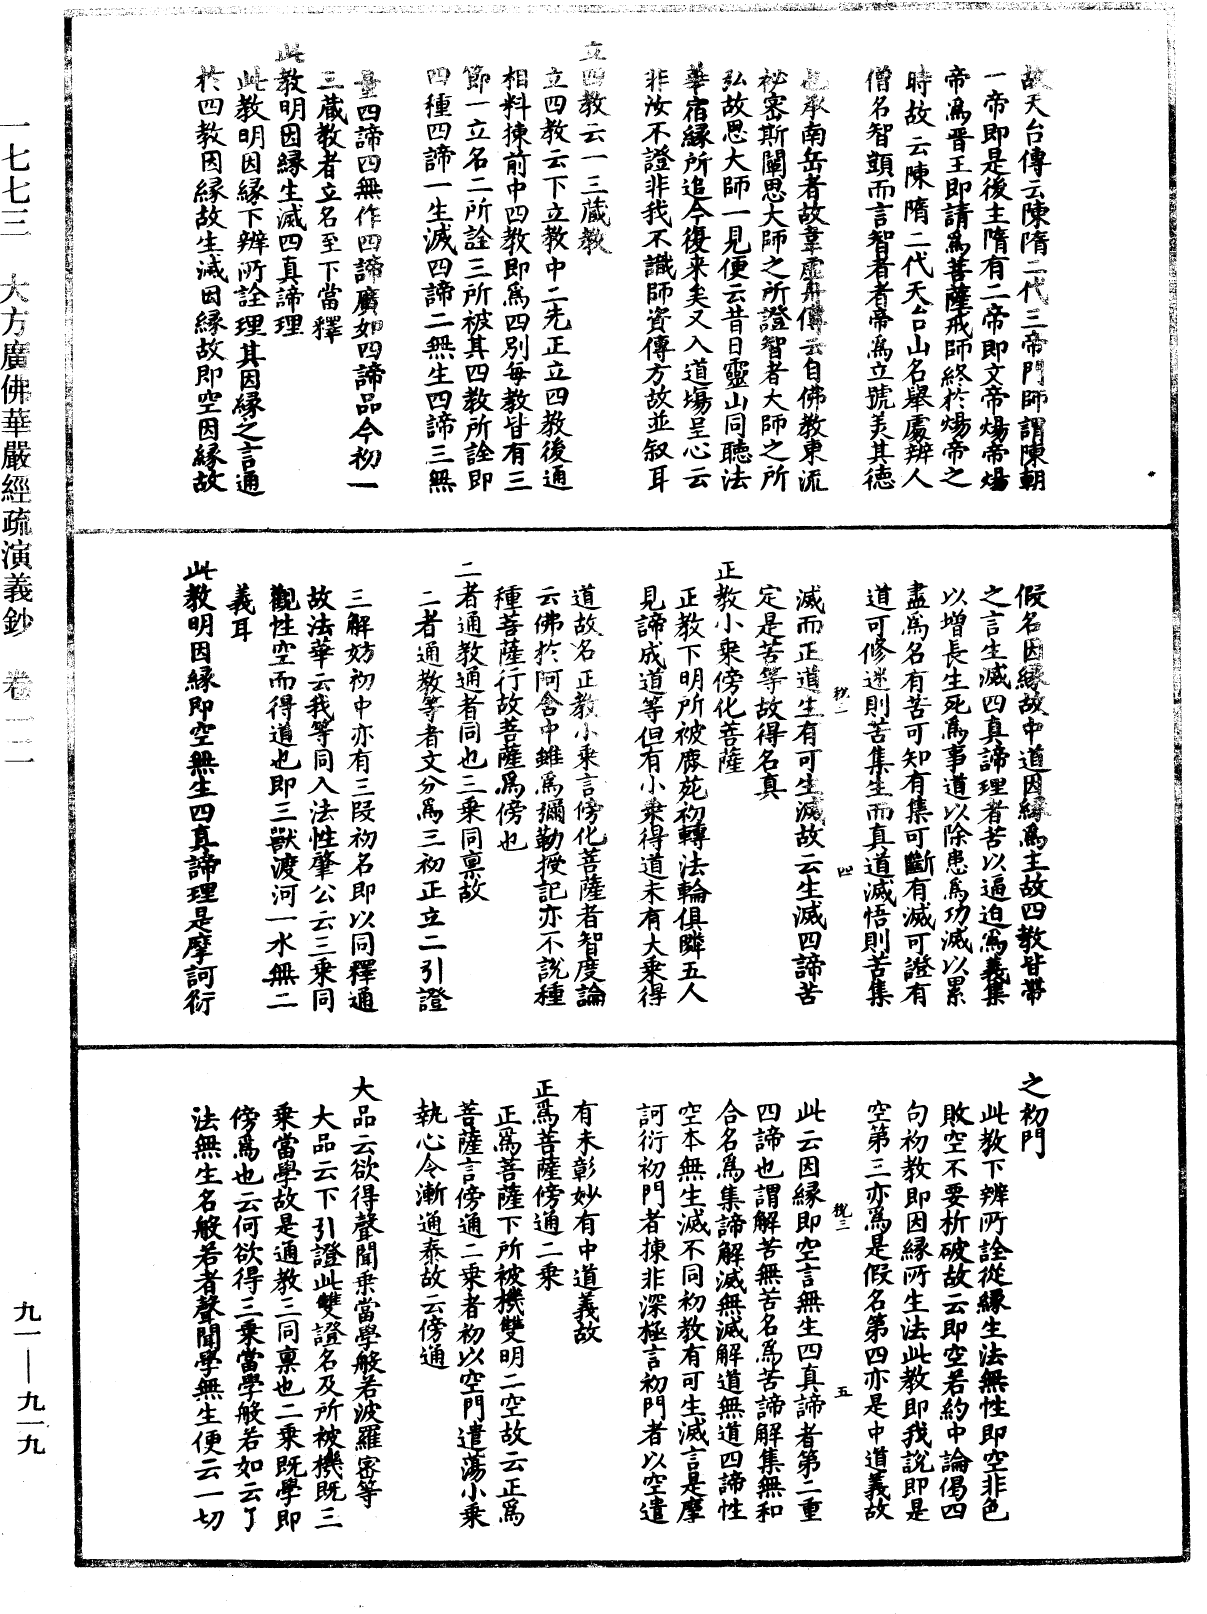 故天台傳云陳隋二代三帝門師謂陳朝
一帝即是後主隋有二帝即文帝煬帝煬
帝為晉王即請為菩薩戒師終於煬帝之
時故云陳隋二代天台山名舉處辨人
僧名智顗而言智者者帝為立號美其德
也承南岳者故韋虛舟傳云自佛教東流
祕密斯闡思大師之所證智者大師之所
弘故思大師一見便云昔日靈山同聽法
華宿緣所追今復来矣又入道場呈心云
非汝不證非我不識師資傳方故並叙耳
立四教云一三藏教
立四教云下立教中二先正立四教後通
相料揀前中四教即為四別每教皆有三
節一立名二所詮三所被其四教所詮即
四種四諦一生滅四諦二無生四諦三無
量四諦四無作四諦廣如四諦品今初一
三藏教者立名至下當釋
此教明因緣生滅四真諦理
此教明因緣下辨所詮理其因緣之言通
於四教因緣故生滅因緣故即空因緣故
假名因緣故中道因緣為主故四教皆帶
之言生滅四真諦理者苦以逼迫為義集
以增長生死為事道以除患為功滅以累
盡為名有苦可知有集可斷有滅可證有
道可修迷則苦集生而真道滅悟則苦集
滅而正道生有可生滅故云生滅四諦苦
定是苦等故得名真
正教小乘傍化菩薩
正教下明所被鹿苑初轉法輪俱隣五人
見諦成道等但有小乘得道未有大乘得
道故名正教小乘言傍化菩薩者智度論
云佛於阿含中雖為彌勒授記亦不說種
種菩薩行故菩薩為傍也
二者通教通者同也三乘同禀故
二者通教等者文分為三初正立二引證
三解妨初中亦有三段初名即以同釋通
故法華云我等同入法性肇公云三乘同
觀性空而得道也即三獸渡河一水無二
義耳
此教明因緣即空無生四真諦理是摩訶衍
之初門
此教下辨所詮從緣生法無性即空非色
敗空不要析破故云即空若約中論偈四
句初教即因緣所生法此教即我說即是
空第三亦為是假名第四亦是中道義故
此云因緣即空言無生四真諦者第二重
四諦也謂解苦無苦名為苦諦解集無和
合名為集諦解滅無滅解道無道四諦性
空本無生滅不同初教有可生滅言是摩
訶衍初門者揀非深極言初門者以空遣
有未彰妙有中道義故
正為菩薩傍通二乘
正為菩薩下所被機雙明二空故云正為
菩薩言傍通二乘者初以空門遣蕩小乘
執心令漸通泰故云傍通
大品云欲得聲聞乘當學般若波羅密等
大品云下引證此雙證名及所被機既三
乘當學故是通教三同禀也二乘既學即
傍為也云何欲得三乘當學般若如云了
法無生名般若者聲聞學無生便云一切
四
五
一七七三　大方廣佛華嚴經疏演義鈔　卷一二
九一—九一九